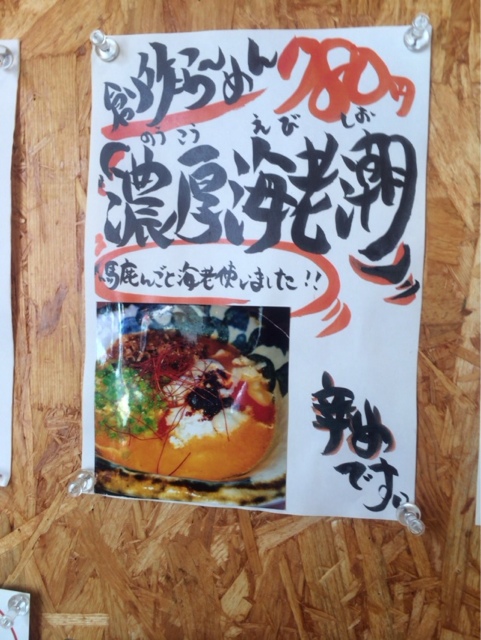 創作らーめん 780円
のうこう えび しお
『濃厚海老潮』
馬鹿んごと海老使いました!!
辛め
です。